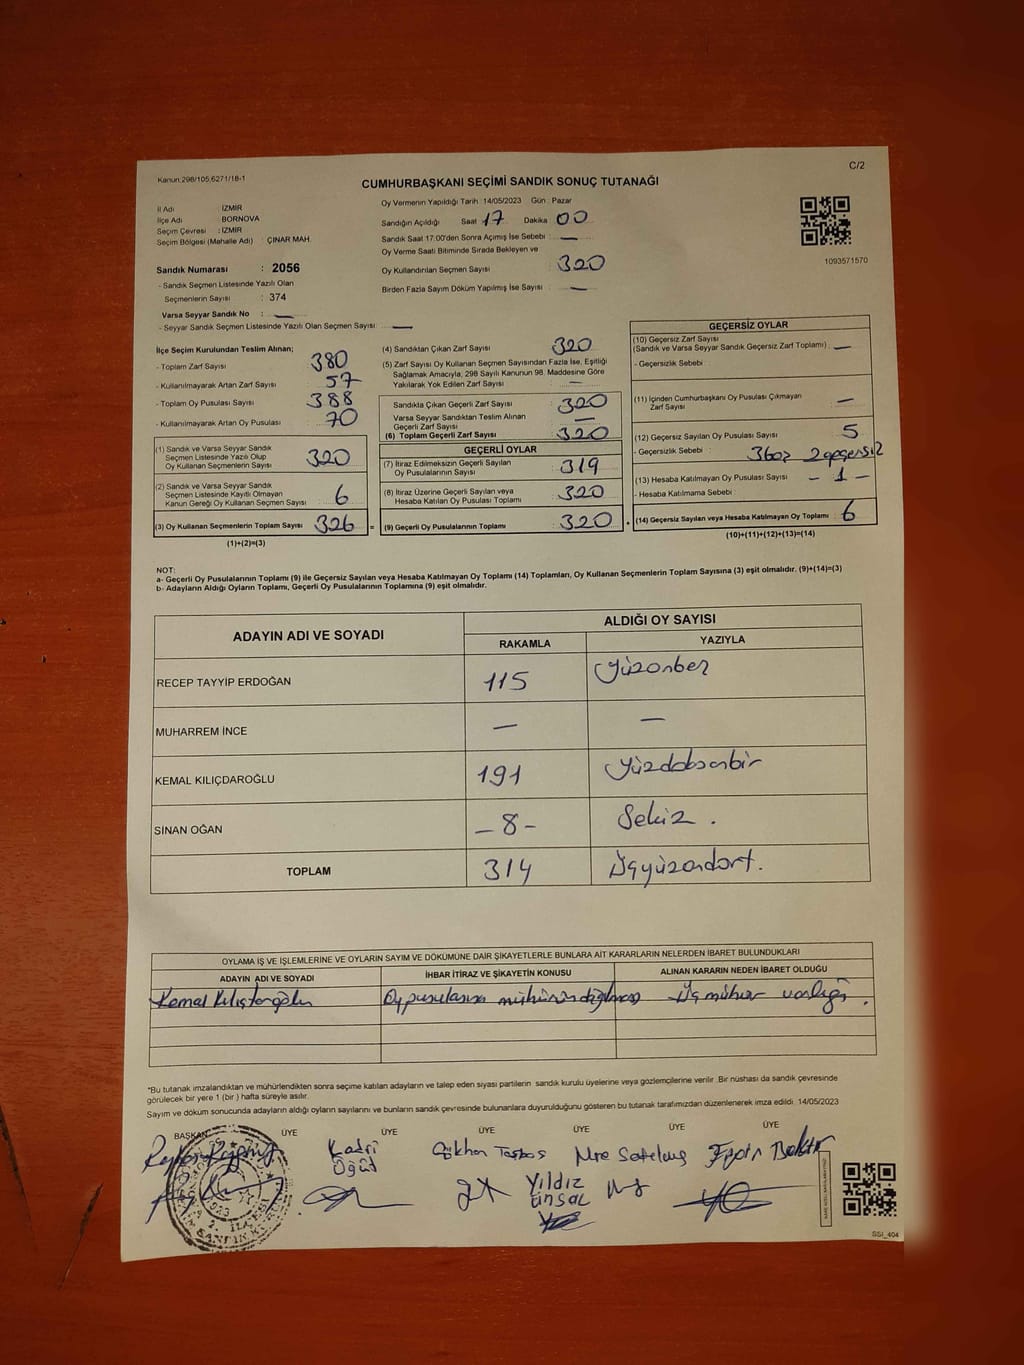 C/2
Kanun:298/105,6271/18-1
CUMHURBAŞKANI SEÇİMİ SANDIK SONUÇ TUTANAĞI
İl Adı : İZMİR
İlçe Adı BORNOVA
Seçim Çevresi : İZMİR
Seçim Bölgesi (Mahalle Adı) ÇINAR MAH.
Sandık Numarası : 2056
- Sandık Seçmen Listesinde Yazılı Olan
Seçmenlerin Sayısı : 374
Varsa Seyyar Sandık No : —
- Seyyar Sandık Seçmen Listesinde Yazılı Olan Seçmen Sayısı: —
Oy Vermenin Yapıldığı Tarih :14/05/2023 Gün : Pazar
Sandığın Açıldığı Saat 17 Dakika 00
Sandık Saat 17:00'den Sonra Açımış İse Sebebi : —
Oy Verme Saati Bitiminde Sırada Bekleyen ve
Oy Kullandırılan Seçmen Sayısı : 320
Birden Fazla Sayım Döküm Yapılmış İse Sayısı : —
1093571570
İlçe Seçim Kurulundan Teslim Alınan;
- Toplam Zarf Sayısı : 380
- Kullanılmayarak Artan Zarf Sayısı : 57
- Toplam Oy Pusulası Sayısı : 388
- Kullanılmayarak Artan Oy Pusulası : 70
(1) Sandık ve Varsa Seyyar Sandık
Seçmen Listesinde Yazılı Olup
Oy Kullanan Seçmenlerin Sayısı : 320
(2) Sandık ve Varsa Seyyar Sandık
Seçmen Listesinde Kayıtlı Olmayan
Kanun Gereği Oy Kullanan Seçmen Sayısı : 6
(3) Oy Kullanan Seçmenlerin Toplam Sayısı : 326 =
(1)+(2)=(3)
(4) Sandıktan Çıkan Zarf Sayısı : 320
(5) Zarf Sayısı Oy Kullanan Seçmen Sayısından Fazla İse, Eşitliği
Sağlamak Amacıyla; 298 Sayılı Kanunun 98. Maddesine Göre
Yakılarak Yok Edilen Zarf Sayısı : —
Sandıkta Çıkan Geçerli Zarf Sayısı : 320
Varsa Seyyar Sandıktan Teslim Alınan
Geçerli Zarf Sayısı : —
(6) Toplam Geçerli Zarf Sayısı : 320
GEÇERLİ OYLAR
(7) İtiraz Edilmeksizin Geçerli Sayılan
Oy Pusulalarının Sayısı : 319
(8) İtiraz Üzerine Geçerli Sayılan veya
Hesaba Katılan Oy Pusulası Toplamı : 320
(9) Geçerli Oy Pusulalarının Toplamı : 320 +
GEÇERSİZ OYLAR
(10) Geçersiz Zarf Sayısı
(Sandık ve Varsa Seyyar Sandık Geçersiz Zarf Toplamı) : —
- Geçersizlik Sebebi :
(11) İçinden Cumhurbaşkanı Oy Pusulası Çıkmayan
Zarf Sayısı : —
(12) Geçersiz Sayılan Oy Pusulası Sayısı : 5
- Geçersizlik Sebebi :
(13) Hesaba Katılmayan Oy Pusulası Sayısı : - 1 -
- Hesaba Katılmama Sebebi :
(14) Geçersiz Sayılan veya Hesaba Katılmayan Oy Toplamı : 6
(10)+(11)+(12)+(13)=(14)
NOT:
a- Geçerli Oy Pusulalarının Toplamı (9) ile Geçersiz Sayılan veya Hesaba Katılmayan Oy Toplamı (14) Toplamları, Oy Kullanan Seçmenlerin Toplam Sayısına (3) eşit olmalıdır. (9)+(14)=(3)
b- Adayların Aldığı Oyların Toplamı, Geçerli Oy Pusulalarının Toplamına (9) eşit olmalıdır.
ADAYIN ADI VE SOYADI ALDIĞI OY SAYISI
RAKAMLA YAZIYLA
RECEP TAYYİP ERDOĞAN 115 Yüzonbeş
MUHARREM İNCE — —
KEMAL KILIÇDAROĞLU 191 Yüzdoksanbir
SİNAN OĞAN - 8 - Sekiz .
TOPLAM 314 Üçyüzondört.
OYLAMA İŞ VE İŞLEMLERİNE VE OYLARIN SAYIM VE DÖKÜMÜNE DAİR ŞİKAYETLERLE BUNLARA AİT KARARLARIN NELERDEN İBARET BULUNDUKLARI
ADAYIN ADI VE SOYADI İHBAR İTİRAZ VE ŞİKAYETİN KONUSU ALINAN KARARIN NEDEN İBARET OLDUĞU
Kemal Oy pusulasına Üç mühür varlığı .
*Bu tutanak imzalandıktan ve mühürlendikten sonra seçime katılan adayların ve talep eden siyasi partilerin sandık kurulu üyelerine veya gözlemçilerine verilir. Bir nüshası da sandık çevresinde
görülecek bir yere 1 (bir ) hafta süreyle asılır.
Sayım ve döküm sonucunda adayların aldığı oyların sayılarını ve bunların sandık çevresinde bulunanlara duyurulduğunu gösteren bu tutanak tarafımızdan düzenlenerek imza edildi. 14/05/2023
BAŞKAN ÜYE ÜYE ÜYE ÜYE ÜYE
Kadri Gökhan
Öğüd
Yıldız
Ünsal
SSI_404